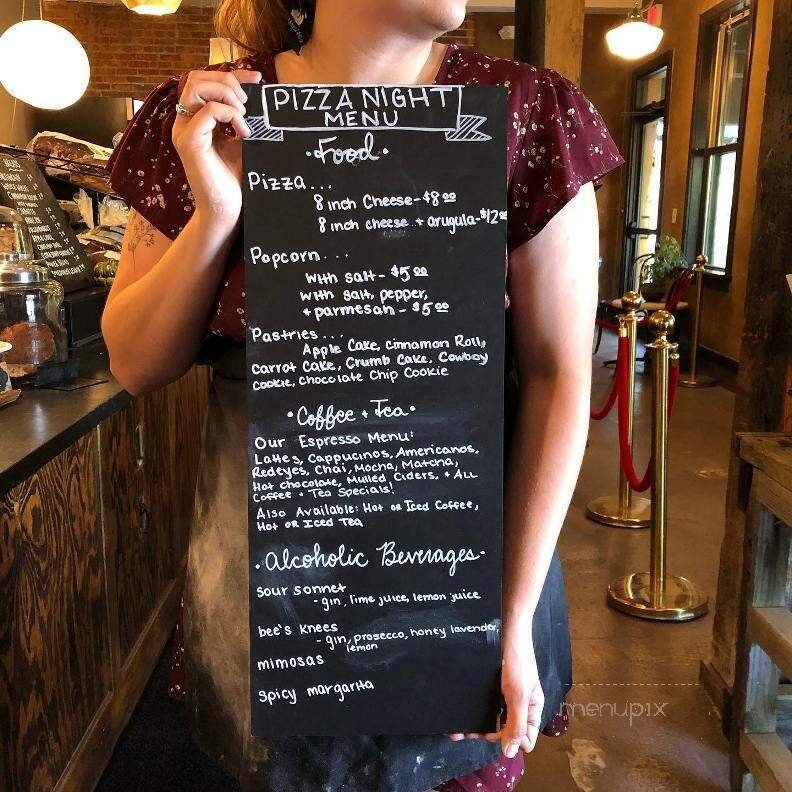 PIZZA NIGHT
MENU
• Food •
Pizza...
8 inch Cheese - $8.00
8 inch cheese + arugula - $12.00
Popcorn...
with salt - $5.00
with salt, pepper,
+ parmesan - $5.00
Pastries...
Apple Cake, Cinnamon Roll,
Carrot Cake, Crumb Cake, Cowboy
Cookie, Chocolate Chip Cookie
• Coffee + Tea •
Our Espresso Menu:
Lattes, Cappucinos, Americanos,
Redeyes, Chai, Mocha, Matcha,
Hot chocolate, Mulled Ciders, + ALL
Coffee + Tea Specials!
Also Available: Hot or Iced Coffee,
Hot or Iced Tea
• Alcoholic Beverages •
sour sonnet
- gin, lime juice, lemon juice
bee's knees
- gin, prosecco, honey lavender,
lemon
mimosas
spicy margarita
menupix